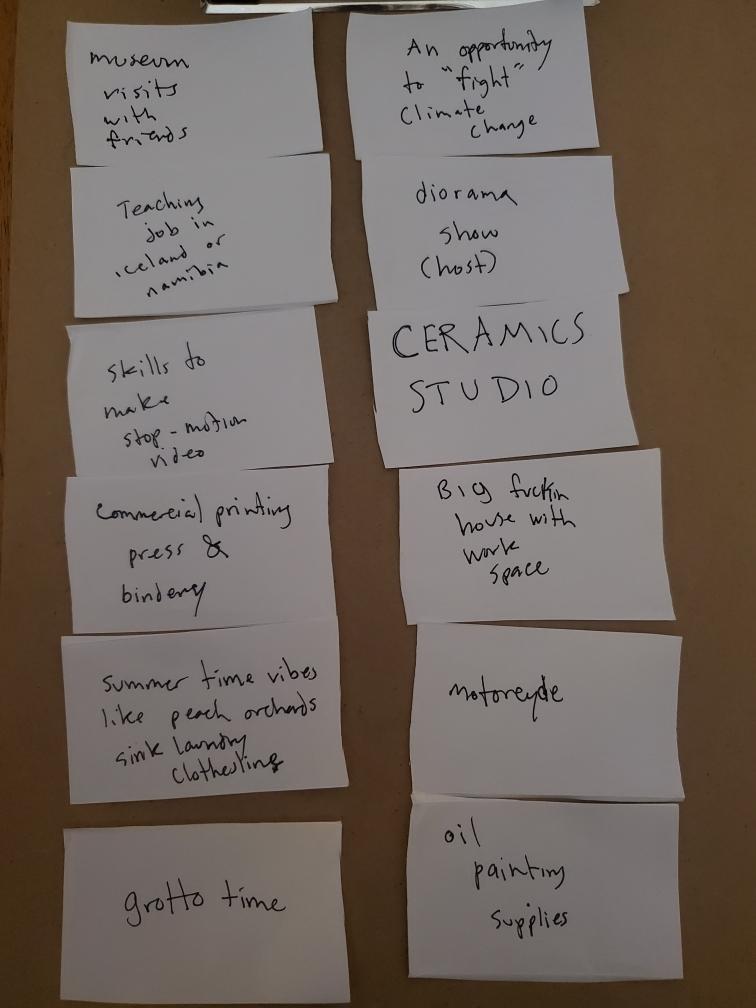 museum
visits
with
friends
Teaching
job in
iceland or
namibia
skills to
make
stop-motion
video
Commercial printing
press &
bindery
summer time vibes
like peach orchards
sink laundry
Clothesling
grotto time
An opportunity
to "fight"
Climate
change
diorama
show
(host)
CERAMICS
STUDIO
BIg fuckin
house with
work
space
motorcycle
oil
painting
supplies